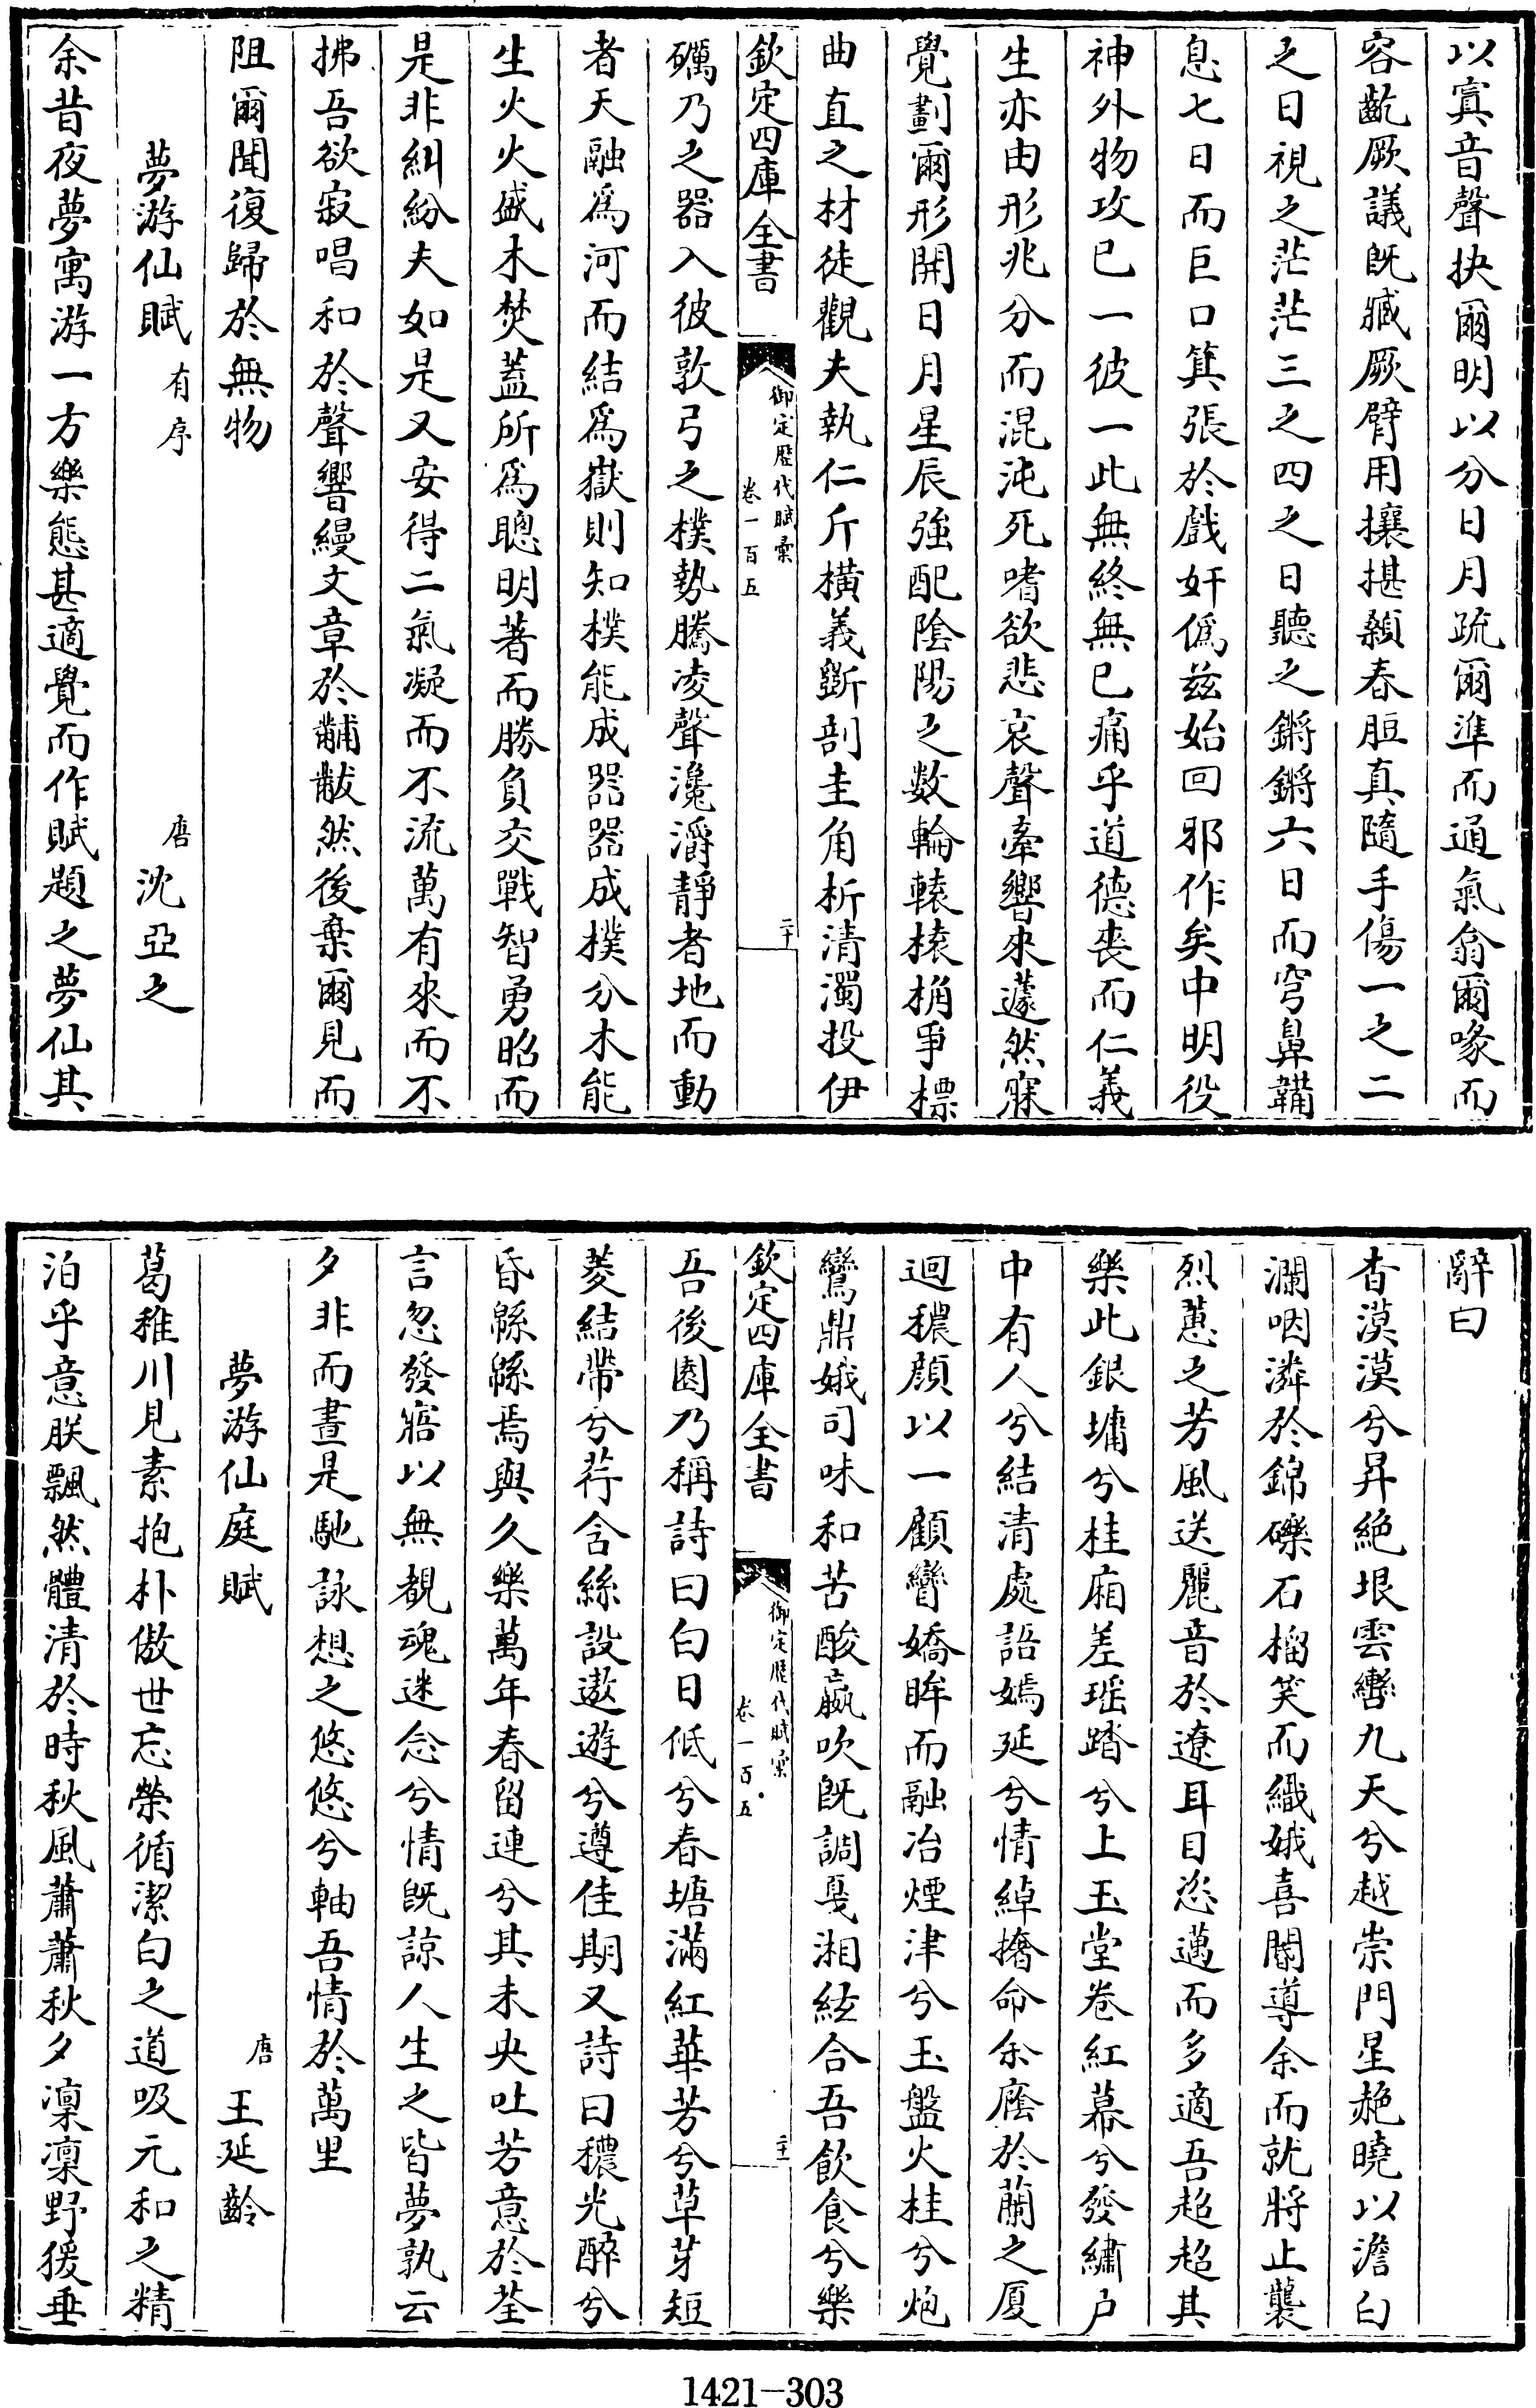 以寘音聲抉爾明以分日月疏爾準而通氣翕爾喙而
容齕厥議既臧厥臂用攘揕顙舂脰真隨手傷一之二
之日視之茫茫三之四之日聽之鏘鏘六日而穹鼻鞴
息七日而巨口箕張於戲奸僞兹始回邪作矣中明役
神外物攻已一彼一此無終無已痛乎道德喪而仁義
生亦由形兆分而混沌死嗜欲悲哀聲牽響來蘧然寐
覺劃爾形開日月星辰強配陰陽之數輪轅榱桷爭標
曲直之材徒觀夫執仁斤橫義斵剖圭角析清濁投伊
欽定四庫全書
御定歷代賦彙
卷一百五
二十
礪乃之器入彼敦弓之樸勢騰凌聲瀺灂靜者地而動
者天融爲河而結爲嶽則知樸能成器器成樸分木能
生火火盛木焚蓋所爲聰明著而勝負交戰智勇昭而
是非糾紛夫如是又安得二氣凝而不流萬有來而不
拂吾欲寂唱和於聲響縵文章於黼黻然後棄爾見而
阻爾聞復歸於無物
夢游仙賦 有序 唐 沈亞之
余昔夜夢寓游一方樂態甚適覺而作賦題之夢仙其
辭曰
杳漠漠兮昇絕垠雲巒九天兮越崇門星赩曉以澹白
瀾咽潾於錦礫石榴笑而織娥喜閽導余而就將止襲
烈蕙之芳風送麗音於遼耳目恣邁而多適吾超超其
樂此銀墉兮桂廂差瑶踏兮上玉堂卷紅幕兮發繡户
中有人兮結清處語嫣延兮情綽撩命余廕於蘭之厦
迴穠顏以一顧轡嬌眸而融冶煙津兮玉盤火桂兮炮
鸞鼎娥司味和苦酸嬴吹既調戛湘絃合吾飲食兮樂
欽定四庫全書
御定歷代賦彙
卷一百五
二十一
吾後園乃稱詩曰白日低兮春塘滿紅華芳兮草芽短
菱結帶兮荇含絲設遨遊兮遵佳期又詩曰穠光醉兮
昏緜緜焉與久樂萬年春留連兮其未央吐芳意於荃
言忽發寤以無覩魂迷念兮情既諒人生之皆夢孰云
夕非而晝是馳詠想之悠悠兮軸吾情於萬里
夢游仙庭賦 唐 王延齡
葛稚川見素抱朴傲世忘榮循潔白之道吸元和之精
泊乎意朕飄然體清於時秋風蕭蕭秋夕凜凜野猨垂
1421-303